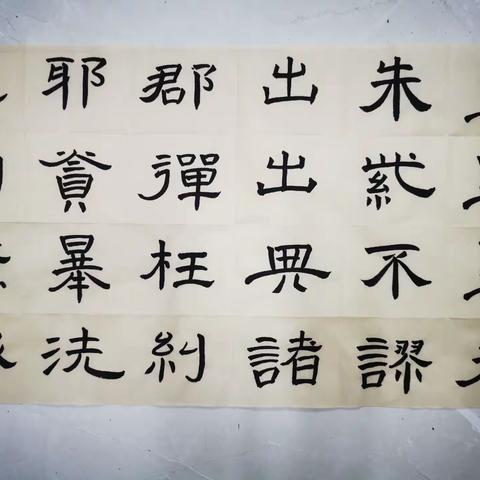 朱紫不謬
出出典諸
郡彈枉糾
耶貪暴洗